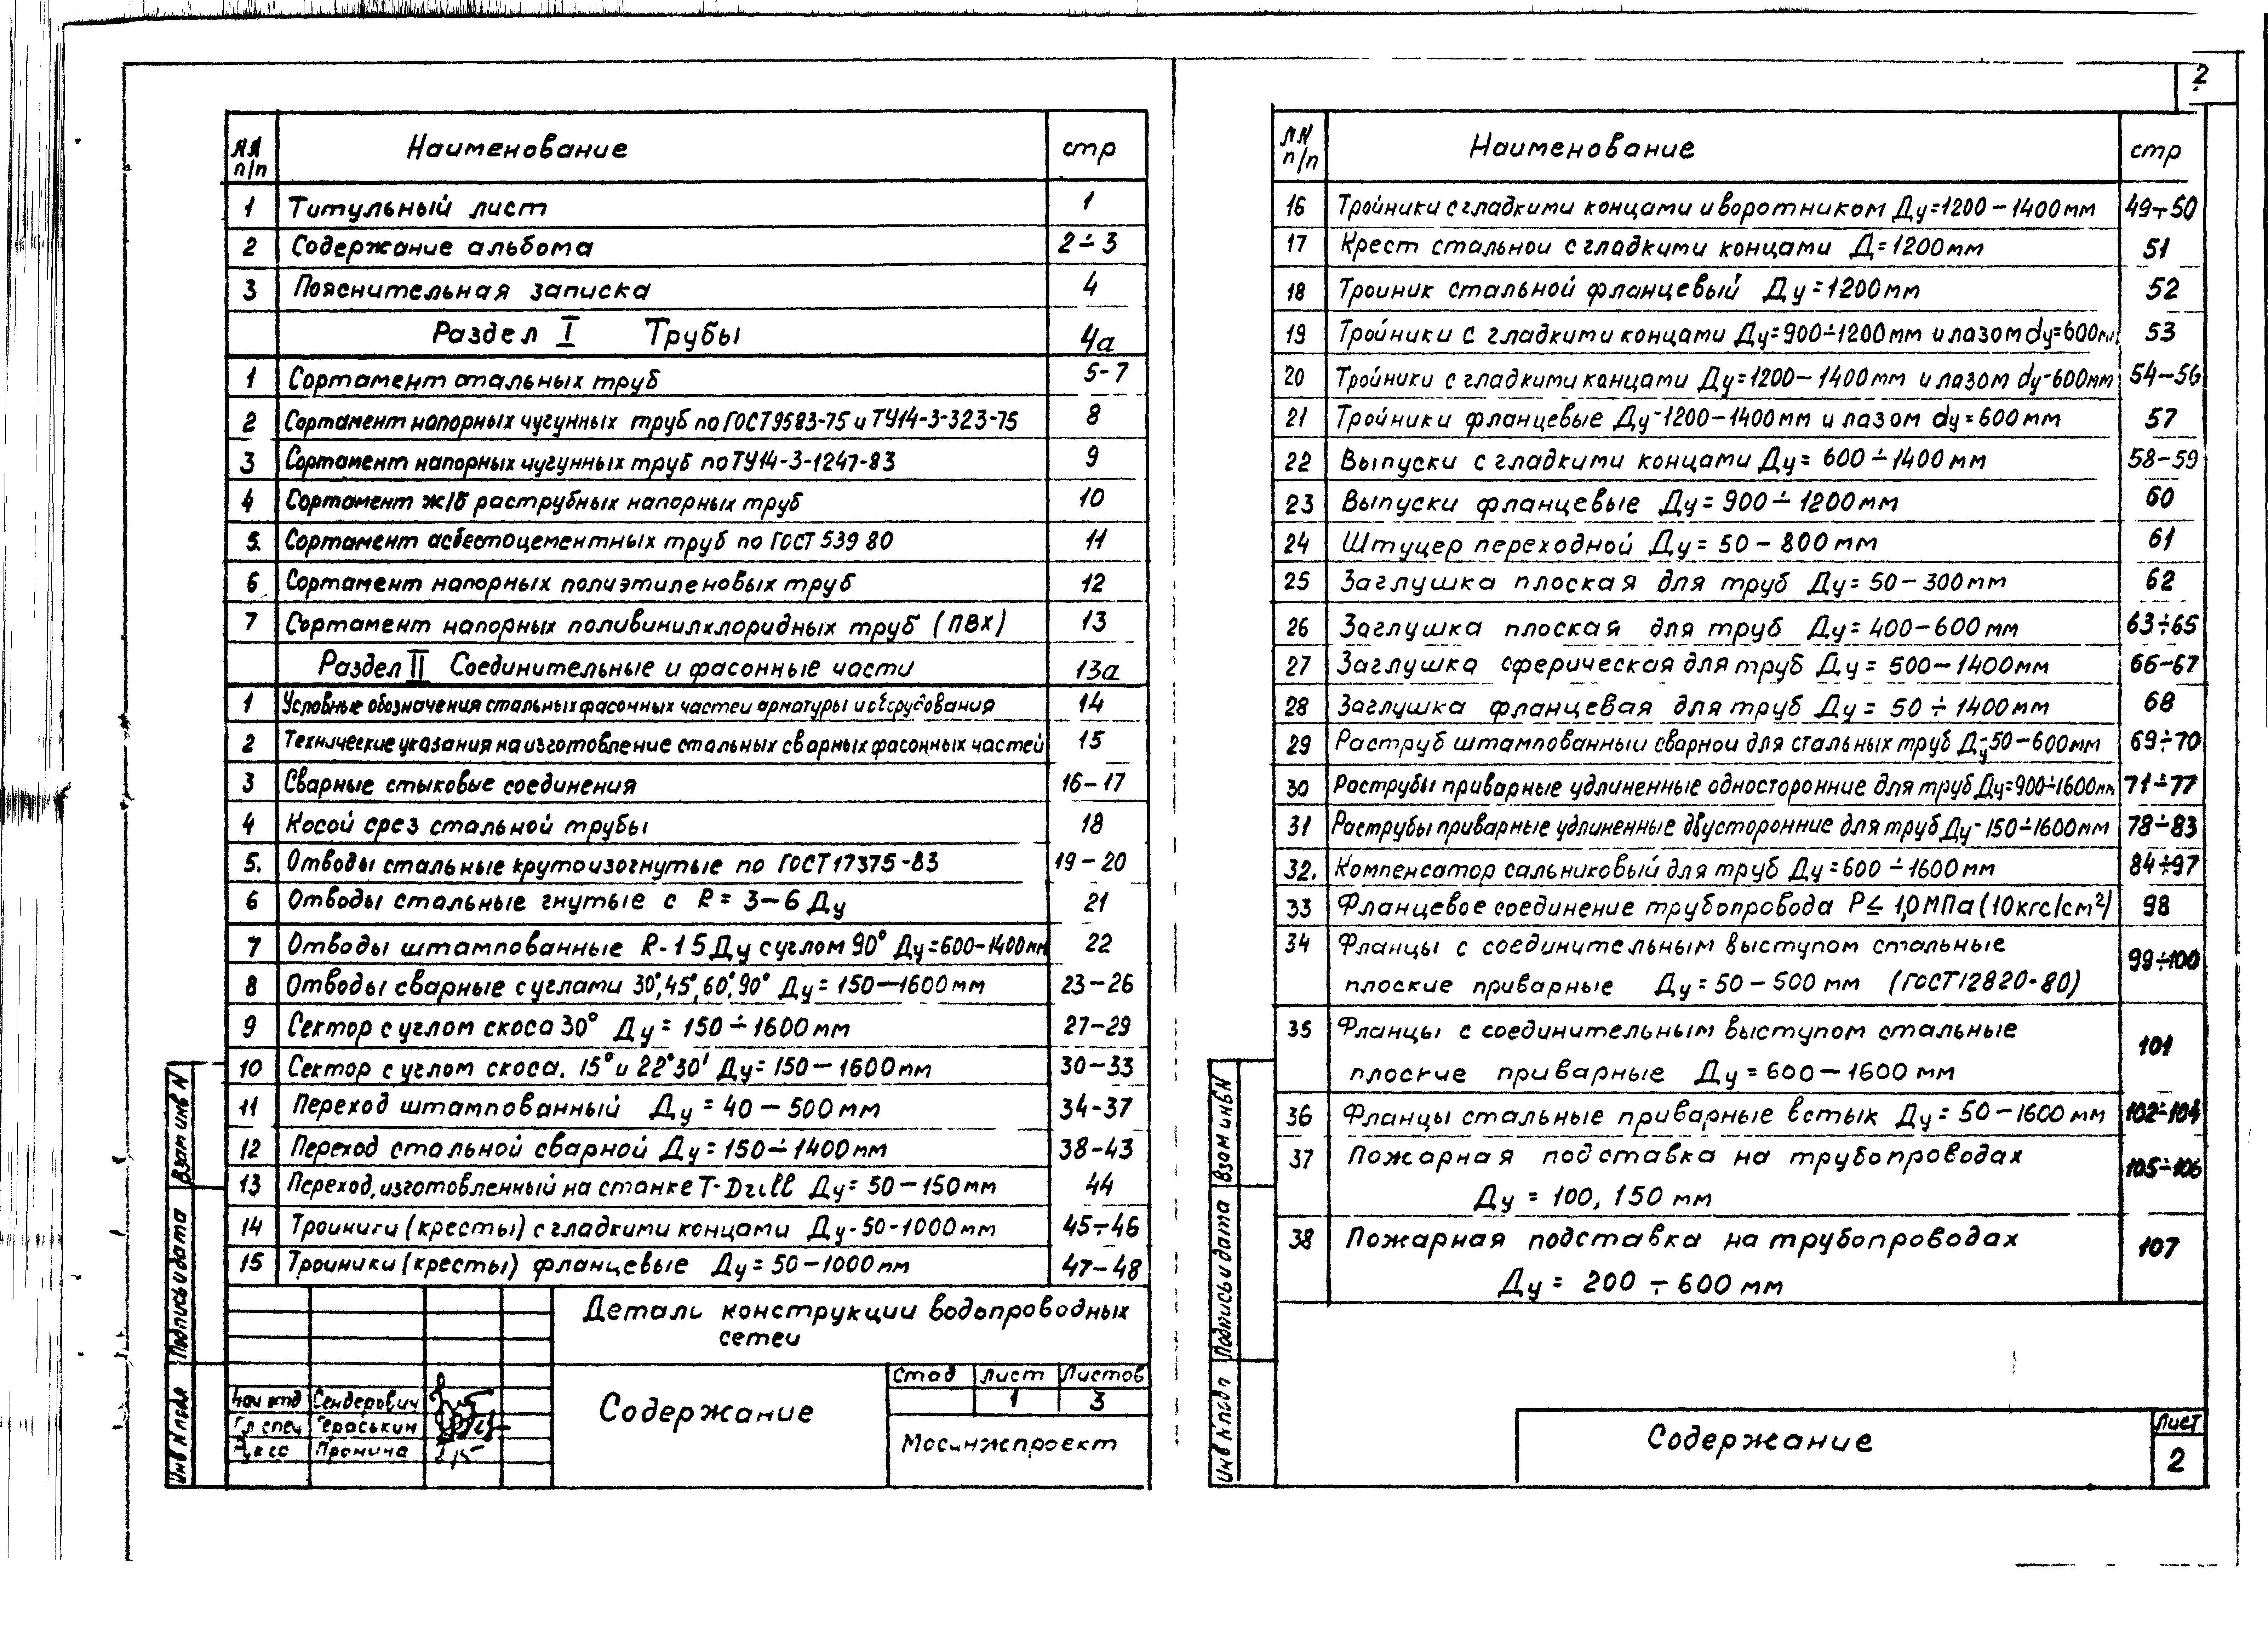 2
NN п/п Наименование стр
1 Титульный лист 1
2 Содержание альбома 2÷3
3 Пояснительная записка 4
Раздел I Трубы 4а
1 Сортамент стальных труб 5-7
2 Сортамент напорных чугунных труб по ГОСТ9583-75 и ТУ14-3-323-75 8
3 Сортамент напорных чугунных труб по ТУ14-3-1247-83 9
4 Сортамент ж/б раструбных напорных труб 10
5. Сортамент асбестоцементных труб по ГОСТ 539 80 11
6 Сортамент напорных полиэтиленовых труб 12
7 Сортамент напорных поливинилхлоридных труб (ПВХ) 13
Раздел II Соединительные и фасонные части 13а
1 Условные обозначения стальных фасонных частей арматуры и оборудования 14
2 Технические указания на изготовление стальных сварных фасонных частей 15
3 Сварные стыковые соединения 16-17
4 Косой срез стальной трубы 18
5. Отводы стальные крутоизогнутые по ГОСТ17375-83 19-20
6 Отводы стальные гнутые с R=3-6 Ду 21
7 Отводы штампованные R-15Ду с углом 90° Ду=600-1400мм 22
8 Отводы сварные с углами 30°,45°,60°,90° Ду=150-1600мм 23-26
9 Сектор с углом скоса 30° Ду=150÷1600мм 27-29
10 Сектор с углом скоса. 15° и 22°30' Ду=150-1600мм 30-33
11 Переход штампованный Ду=40-500мм 34-37
12 Переход стальной сварной Ду=150÷1400мм 38-43
13 Переход, изготовленный на станке T-Drill Ду=50-150мм 44
14 Троиниги (кресты) с гладкими концами Ду-50-1000мм 45÷46
15 Троиники (кресты) фланцевые Ду=50-1000мм 47-48
Детали конструкции водопроводных
сетеи
Содержание
Стад Лист Листов
1 3
Мосинжпроект
Нач отд Сендерович
Гл спец Гераськин
Пронина
Инв N подл Подпись и дата Взам инв N
NN п/п Наименование стр
16 Тройники с гладкими концами и воротником Ду=1200-1400мм 49÷50
17 Крест стальнои с гладкими концами Д=1200мм 51
18 Троиник стальной фланцевый Ду=1200мм 52
19 Тройники с гладкими концами Ду=900÷1200мм и лазом dу=600мм 53
20 Тройники с гладкими концами Ду=1200-1400мм и лазом dу-600мм 54-56
21 Тройники фланцевые Ду-1200-1400мм и лазом dу=600мм 57
22 Выпуски с гладкими концами Ду=600÷1400мм 58-59
23 Выпуски фланцевые Ду=900÷1200мм 60
24 Штуцер переходной Ду=50-800мм 61
25 Заглушка плоская для труб Ду=50-300мм 62
26 Заглушка плоская для труб Ду=400-600мм 63÷65
27 Заглушка сферическая для труб Ду=500-1400мм 66-67
28 Заглушка фланцевая для труб Ду=50÷1400мм 68
29 Раструб штампованныи сварнои для стальных труб Ду-50-600мм 69÷70
30 Раструбы приварные удлиненные односторонние для труб Ду=900÷1600мм 71÷77
31 Раструбы приварные удлиненные двусторонние для труб Ду-150÷1600мм 78÷83
32. Компенсатор сальниковый для труб Ду=600÷1600мм 84÷97
33 Фланцевое соединение трубопровода P≤1,0МПа(10кгс/см²) 98
34 Фланцы с соединительным выступом стальные 99÷100
плоские приварные Ду=50-500мм (ГОСТ12820-80)
35 Фланцы с соединительным выступом стальные 101
плоские приварные Ду=600-1600мм
36 Фланцы стальные приварные встык Ду=50-1600мм 102÷104
37 Пожарная подставка на трубопроводах 105÷106
Ду=100, 150мм
38 Пожарная подставка на трубопроводах 107
Ду=200÷600мм
Содержание
Лист
2
Инв N подл Подпись и дата Взам инв N